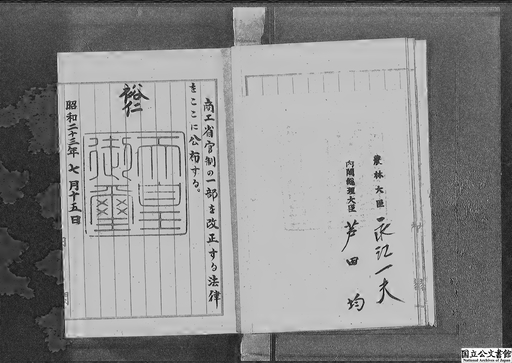 農林大臣 永江一夫
内閣総理大臣 芦田均
商工省官制の一部を改正する法律
をここに公布する。
裕仁
天皇
御璽
昭和二十三年七月十五日
国立公文書館
National Archives of Japan